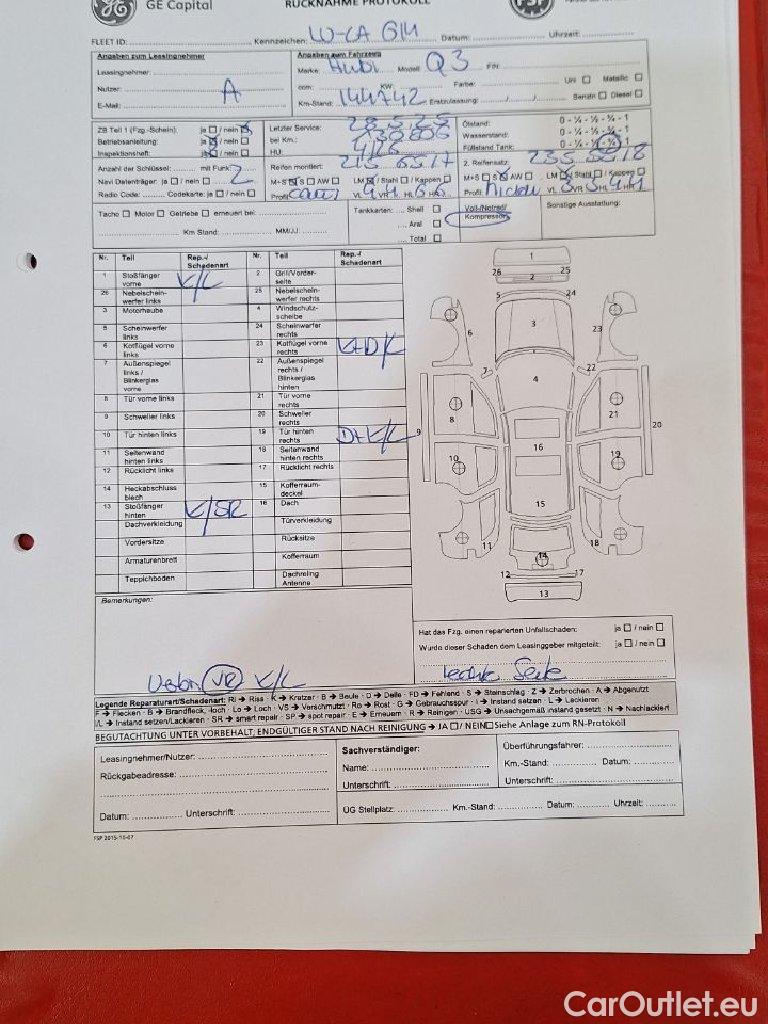 GE Capital
RÜCKNAHME PROTOKOLL
FSP
FLEET ID: Kennzeichen: LU-CA 614 Datum: Uhrzeit:
Angaben zum Leasingnehmer
Leasingnehmer:
Nutzer: A
E-Mail:
Angaben zum Fahrzeug
Marke: Audi Modell: Q3
ccm: KW: Farbe: Uni Metallic
Km-Stand: 144742 Erstzulassung: / / Benzin Diesel
ZB Teil 1 (Fzg.-Schein): ja / nein
Betriebsanleitung: ja / nein
Inspektionsheft: ja / nein
Letzter Service: 28.5.25
bei Km.: 130806
HU: 4/26
Ölstand: 0 - ¼ - ½ - ¾ - 1
Wasserstand: 0 - ¼ - ½ - ¾ - 1
Füllstand Tank: 0 - ¼ - ½ - ¾ - 1
Anzahl der Schlüssel: mit Funk 2
Navi Datenträger: ja / nein
Radio Code: Codekarte: ja / nein
Reifen montiert: 215 65 17
M+S S AW LM / Stahl / Kappen
Profil VL VR HL HR
2. Reifensatz: 235 18
M+S S AW LM / Stahl / Kappen
Profil VL VR HL HR
Tacho Motor Getriebe erneuert bei:
/Km Stand: MM/JJ:
Tankkarten: Shell
Aral
Total
Voll-/Notrad/
Kompressor
Sonstige Ausstattung:
Nr. Teil Rep.-/ Schadenart Nr. Teil Rep.-/ Schadenart
1 Stoßfänger vorne K/L 2 Grill/Vorderseite
26 Nebelscheinwerfer links 25 Nebelscheinwerfer rechts
3 Motorhaube 4 Windschutzscheibe
5 Scheinwerfer links 24 Scheinwerfer rechts
6 Kotflügel vorne links 23 Kotflügel vorne rechts K+D/L
7 Außenspiegel links / Blinkerglas vorne 22 Außenspiegel rechts / Blinkerglas hinten
8 Tür vorne links 21 Tür vorne rechts
9 Schweller links 20 Schweller rechts
10 Tür hinten links 19 Tür hinten rechts D+K/L
11 Seitenwand hinten links 18 Seitenwand hinten rechts
12 Rücklicht links 17 Rücklicht rechts
14 Heckabschlussblech 15 Kofferraumdeckel
13 Stoßfänger hinten K/SR 16 Dach
Dachverkleidung Türverkleidung
Vordersitze Rücksitze
Armaturenbrett Kofferraum
Teppichboden Dachreling Antenne
1
26 2 25
5 24
6 3 23
7 22
4
8 21
9 20
10 16 19
15
11 14 18
12 17
13
Bemerkungen:
VR K/L
Hat das Fzg. einen reparierten Unfallschaden: ja / nein
Wurde dieser Schaden dem Leasinggeber mitgeteilt: ja / nein
rechte Seite
Legende Reparaturart/Schadenart: RI → Riss · K → Kratzer · B → Beule · D → Delle · FD → Fehlend · S → Steinschlag · Z → Zerbrochen · A → Abgenutzt
F → Flecken · B → Brandfleck, -loch · Lo → Loch · VS → Verschmutzt · Ro → Rost · G → Gebrauchsspur · I → Instand setzen · L → Lackieren
I/L → Instand setzen/Lackieren · SR → smart repair · SP → spot repair · E → Erneuern · R → Reinigen · USG → Unsachgemäß instand gesetzt · N → Nachlackiert
BEGUTACHTUNG UNTER VORBEHALT, ENDGÜLTIGER STAND NACH REINIGUNG → JA / NEIN Siehe Anlage zum RN-Protokoll
Leasingnehmer/Nutzer:
Rückgabeadresse:
Datum: Unterschrift:
Sachverständiger:
Name:
Unterschrift:
Überführungsfahrer:
Km.-Stand: Datum:
Unterschrift:
ÜG Stellplatz: Km.-Stand: Datum: Uhrzeit:
FSP 2015-10-07
CarOutlet.eu